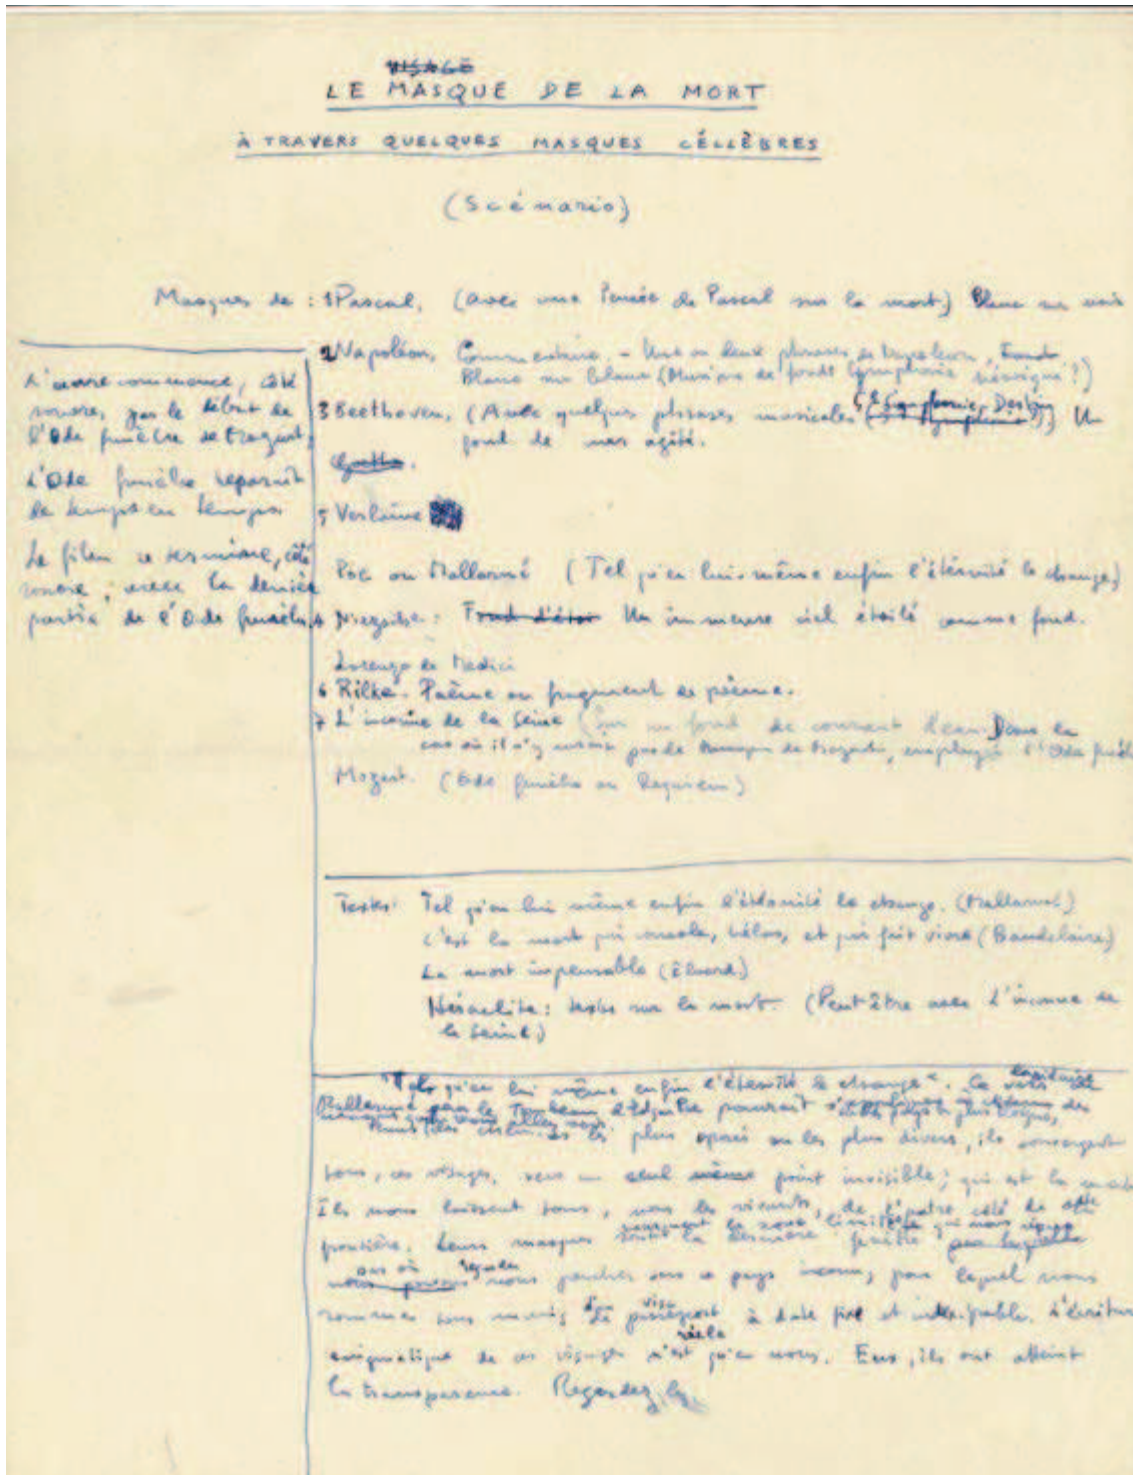 VISAGE
LE MASQUE DE LA MORT
À TRAVERS QUELQUES MASQUES CÉLLÈBRES
(Scénario)
Masques de : 1 Pascal, (avec une Pensée de Pascal sur la mort) Blanc sur noir
2 Napoléon. Commentaire. - Une ou deux phrases de Napoléon,
Blanc sur blanc (Musique de fond Symphonie héroïque?)
3 Beethoven, (Avec quelques phrases musicales (5e Symphonie, Destin)) Un
fond de mer agité.
Goethe.
5 Verlaine
Poe ou Mallarmé (Tel qu'en lui-même enfin l'éternité le change)
4 Nietzsche: Fond d'étoi Un immense ciel étoilé comme fond.
Lorenzo de Medici
6 Rilke. Poème ou fragment de poème.
7 L'inconnue de la Seine (Sur un fond de courant d'eau) Dans le
cas où il n'y aurait pas de masque de Mozart, employer l'Ode funèbre
Mozart. (Ode funèbre ou Requiem)
L'œuvre commence, côté
sonore, par le début de
l'Ode funèbre de Mozart.
L'Ode funèbre reparaît
de temps en temps
Le film se termine, côté
sonore, avec la dernière
partie de l'Ode funèbre
Textes: Tel qu'en lui même enfin l'éternité le change. (Mallarmé)
C'est la mort qui console, hélas, et qui fait vivre (Baudelaire)
La mort impensable (Éluard)
Héraclite: textes sur la mort. (Peut-être avec L'inconnue de
la Seine)
"Tel qu'en lui même enfin l'éternité le change". Ce vers
Mallarmé pour le Tombeau d'Edgar Poe pourrait s'appliquer à chacun des
masques que vous allez voir.
les plus oposés ou les plus divers, ils convergent
tous, ces visages, vers un seul même point invisible; qui est la mort
Ils nous laissent tous, nous les vivants, de l'autre côté de cette
frontière. Leurs masques sont la dernière fenêtre par laquelle
nous pencher vers ce pays inconnu, pour lequel nous
sommes tous munis d'un passeport à date fixe et
énigmatique de ces visages n'est qu'en nous. Eux, ils ont atteint
la transparence. Regardez les.